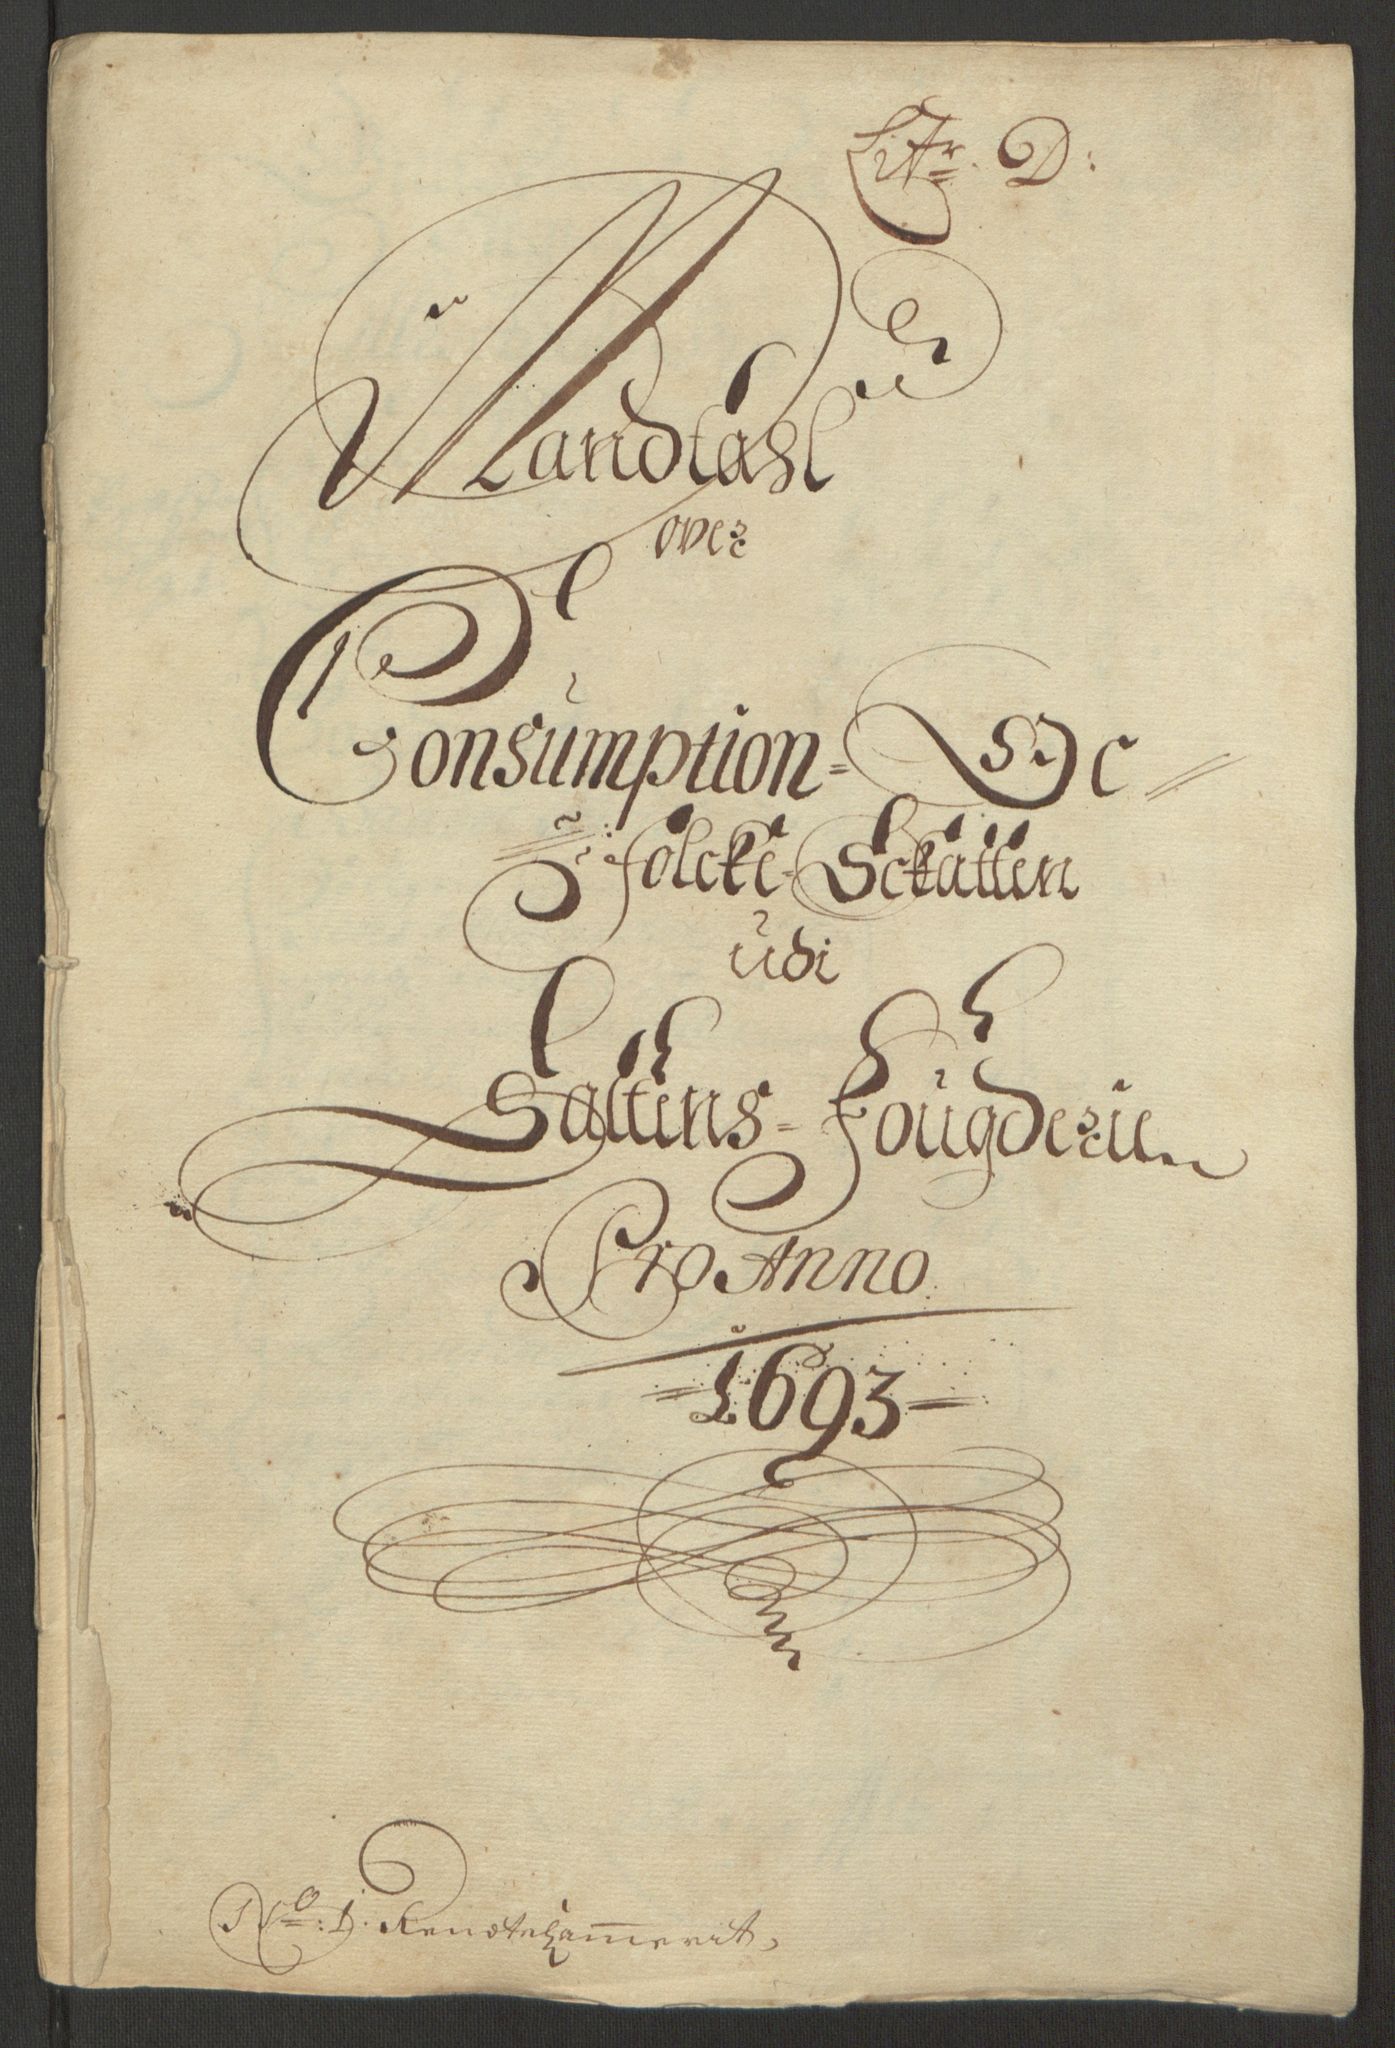 Litr. D:
Mandtahl
over
Consumption= Oc
folcke-Schatten
udi
Saltens= Fougderie
Pro Anno
1693
No: 1. Rendtekammerit,